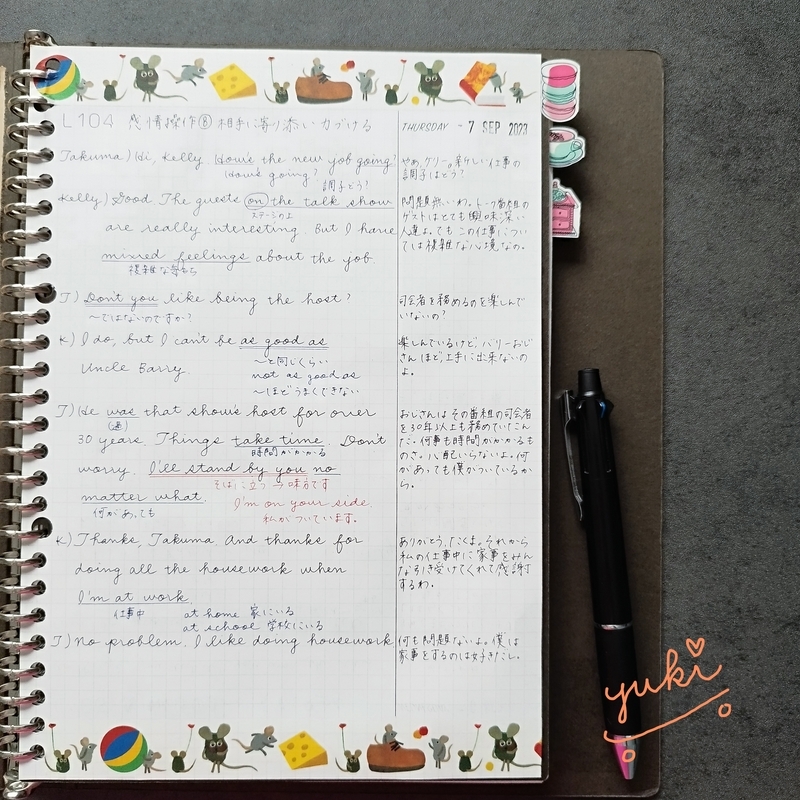 L104 感情操作⑧ 相手に寄り添い力づける
THURSDAY - 7 SEP 2023
Takuma) Hi, Kelly How's the new job going?
How's going?
調子どう?
Kelly) Good The guests on the talk show
ステージの上
are really interesting. But I have
mixed feelings about the job.
複雑な気もち
T) Don't you like being the host?
〜ではないのですか?
K) I do, but I can't be as good as
〜と同じくらい
Uncle Barry.
not as good as
〜ほどうまくできない
T) He was that show's host for over
(過)
30 years. Things take time. Don't
時間がかかる
worry. I'll stand by you no
そばに立つ→味方です
matter what.
何があっても
I'm on your side.
私がついています。
K) Thanks, Takuma. And thanks for
doing all the housework when
I'm at work.
仕事中
at home 家にいる
at school 学校にいる
T) No problem. I like doing housework
やあ、ケリー。新しい仕事の
調子はどう?
問題無いわ。トーク番組の
ゲストはとても興味深い
人達よ。でもこの仕事につい
ては複雑な心境なの。
司会者を務めるのを楽しんで
いないの?
楽しんでいるけど、バリーおじ
さんほど上手に出来ないの
よ。
おじさんはその番組の司会者
を30年以上も務めていたん
だ。何事も時間がかかるも
のさ。心配いらないよ。何
があっても僕がついているか
ら。
ありがとう、たくま。それから
私の仕事中に家事をみん
な引き受けてくれて感謝
するわ。
何も問題ないよ。僕は
家事をするのは好きだし。
yuki